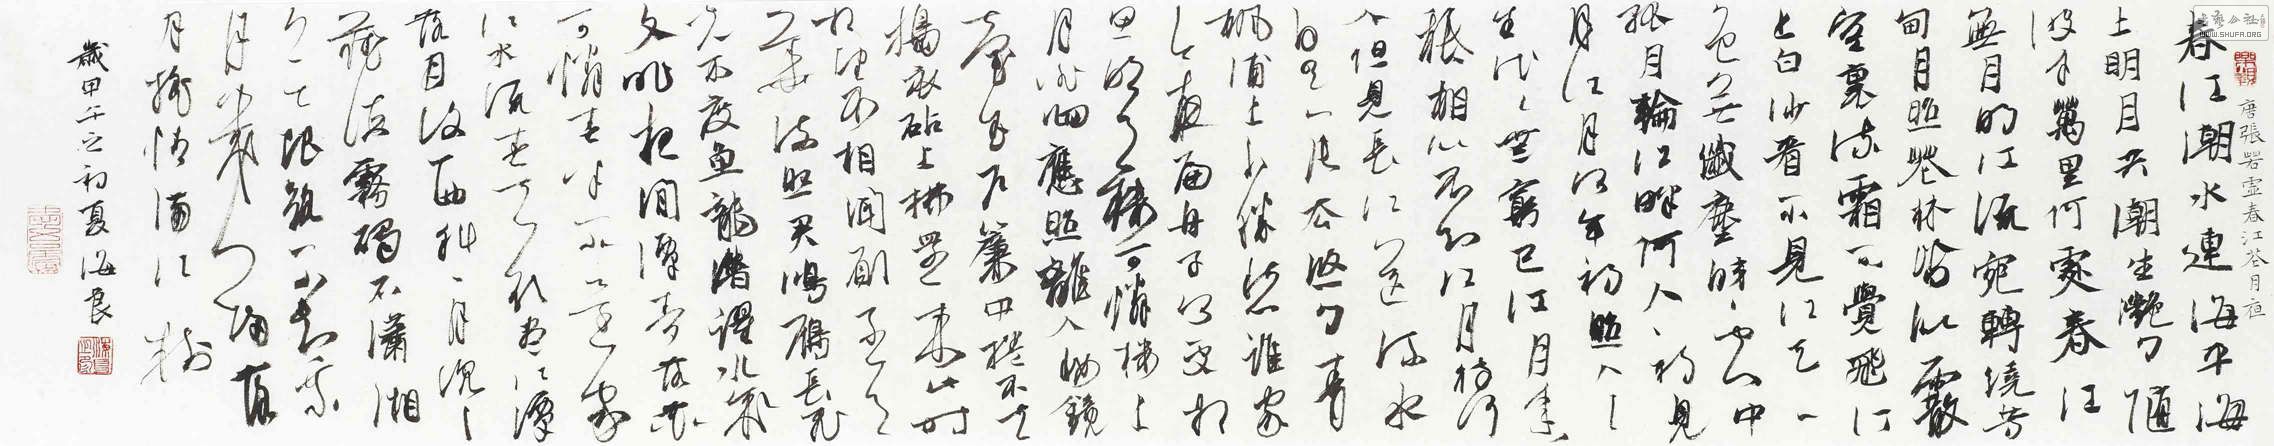 唐張若虛春江花月夜
春江潮水連海平海
上明月共潮生灩灩隨
波千萬里何處春江
無月明江流宛轉繞芳
甸月照花林皆似霰
空裏流霜不覺飛汀
上白沙看不見江天一
色無纖塵皎皎空中
孤月輪江畔何人初見
月江月何年初照人人
生代代無窮已江月年年
祇相似不知江月待何
人但見長江送流水
白雲一片去悠悠青
楓浦上不勝愁誰家
今夜扁舟子何處相
思明月樓可憐樓上
月徘徊應照離人妝鏡
臺玉戶簾中捲不去
擣衣砧上拂還來此時
相望不相聞願逐月
華流照君鴻雁長飛
光不度魚龍潛躍水成
文昨夜閒潭夢落花
可憐春半不還家
江水流春去欲盡江潭
落月復西斜斜月沉沉
藏海霧碣石瀟湘
無限路不知乘
月幾人歸落
月搖情滿江樹
歲甲午之初夏海良
WWW.SHUFA.ORG